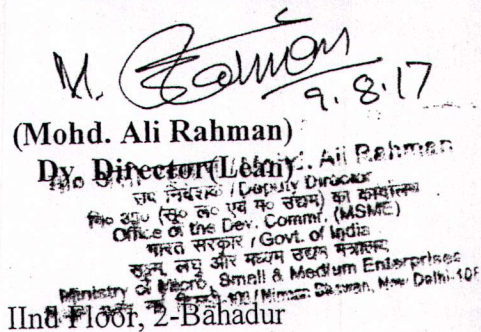 M. Rahman
9.8.17
(Mohd. Ali Rahman)
Dy. Director(Lean) Ali Rahman
उप निदेशक / Deputy Director
वि० आ० (सू० ल० एवं म० उद्यम) का कार्यालय
Office of the Dev. Commr. (MSME)
भारत सरकार / Govt. of India
सूक्ष्म, लघु और मध्यम उद्यम मंत्रालय
Ministry of Micro, Small & Medium Enterprises
Nirman Bhawan, New Delhi-108
IInd Floor, 2-Bahadur